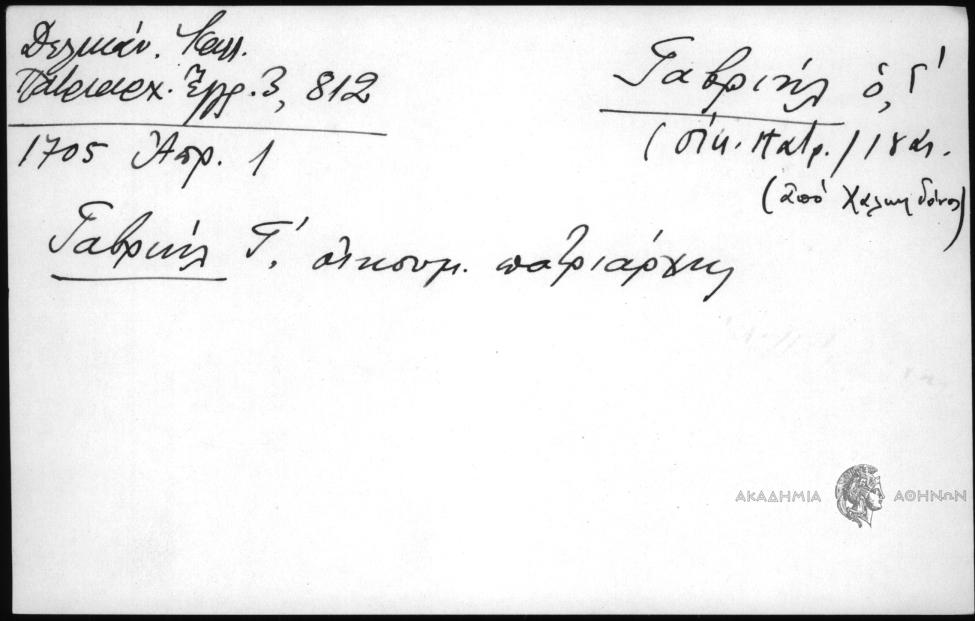 Δελικάν. Καλ.
Πατριαρχ. Ἔγγρ. 3, 812
1705 Ἀπρ. 1
Γαβριήλ ὁ Γ΄
(οἰκ. Πατρ.)
(ἀπό Χαλκηδόνος)
Γαβριήλ Γ΄. οἰκουμ. πατριάρχης
ΑΚΑΔΗΜΙΑ ΑΘΗΝΩΝ